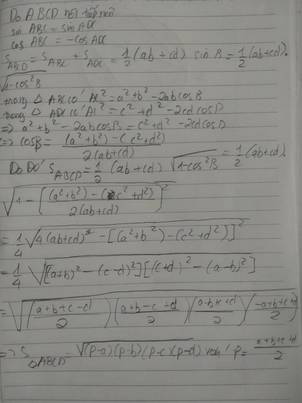 Do ABCD nội tiếp nên
sin ABC = sin ADC
cos ABC = -cos ADC
S_ABCD = S_ABC + S_ADC = 1/2 (ab + cd) sin B = 1/2 (ab+cd).
√1-cos²B
trong △ ABC có AC² = a²+b² - 2ab cosB
trong △ ADC có AC² = c² + d² - 2cd cosD
=> a² + b² - 2ab cosB = c² + d² - 2cd cosD
=> cosB = (a²+b²) - (c²+d²) / 2(ab+cd)
Do Đó S_ABCD = 1/2 (ab + cd) √1-cos²B = 1/2 (ab+cd).
√1 - [(a²+b²) - (c²+d²) / 2(ab+cd)]²
= 1/4 √4(ab+cd)² - [(a²+b²) - (c²+d²)]²
= 1/4 √[(a+b)² - (c-d)²][(c+d)² - (a-b)²]
= √(a+b+c-d / 2)(a+b-c+d / 2)(a-b+c+d / 2)(-a+b+c+d / 2)
=> S_ABCD = √(p-a)(p-b)(p-c)(p-d) với p = a+b+c+d / 2